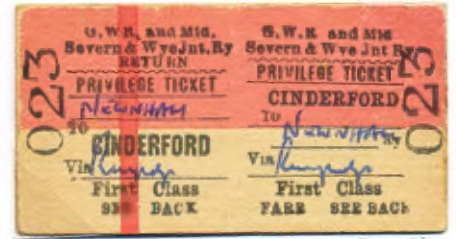 023
G.W.R. and Mid.
Severn & Wye Jnt. Ry
RETURN
PRIVILEGE TICKET
NEWNHAM
TO
CINDERFORD
Via
First Class
SEE BACK
G.W.R. and Mid
Severn & Wye Jnt Ry
PRIVILEGE TICKET
CINDERFORD
TO
NEWNHAM
Via
First Class
FARE SEE BACK
023